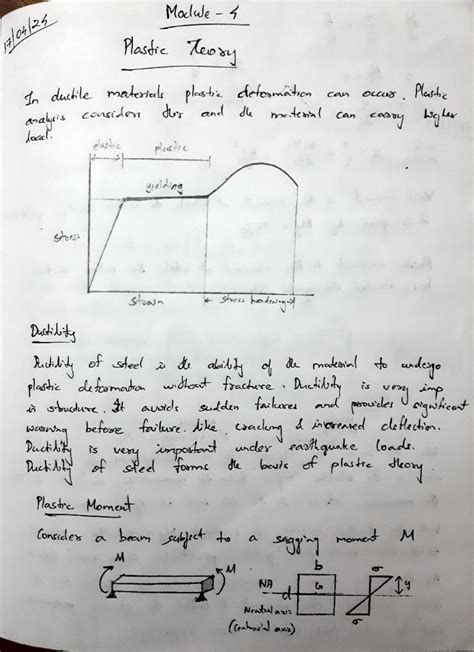 17/04/24
Module - 4
Plastic Theory
In ductile materials plastic deformation can occur. Plastic
analysis considers this and the material can carry higher
load.
elastic
plastic
yielding
stress
strain
stress hardening
Ductility
Ductility of steel is the ability of the material to undergo
plastic deformation without fracture. Ductility is very imp
in structure. It avoids sudden failures and provides significant
warning before failure like cracking & increased deflection.
Ductility is very important under earthquake loads.
Ductility of steel forms the basis of plastic theory.
Plastic Moment
Consider a beam subject to a sagging moment M
M
M
b
NA
d
G
σ
y
σ
Neutral axis
(centroidal axis)